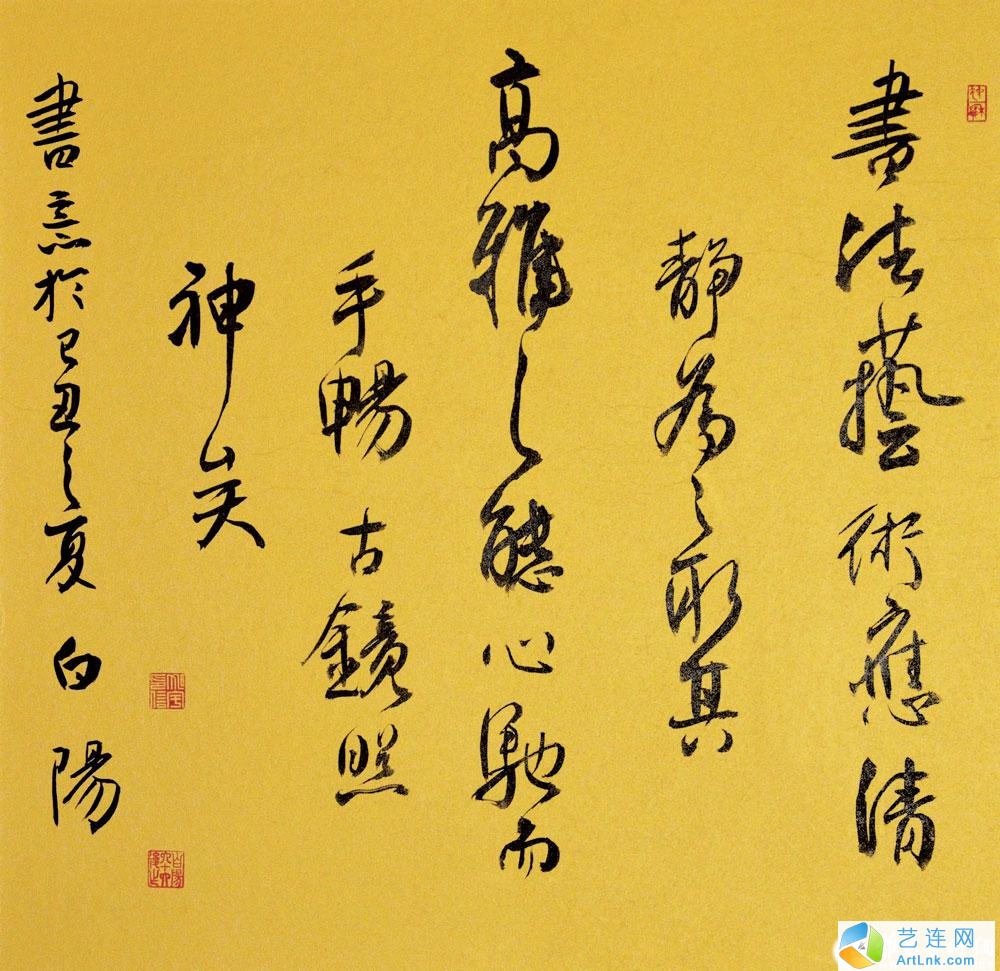 書法藝術應清
靜為之取其
高雅之態心馳而
手暢古鏡照
神矣
書意於己丑之夏白陽
艺连网
ArtLnk.com